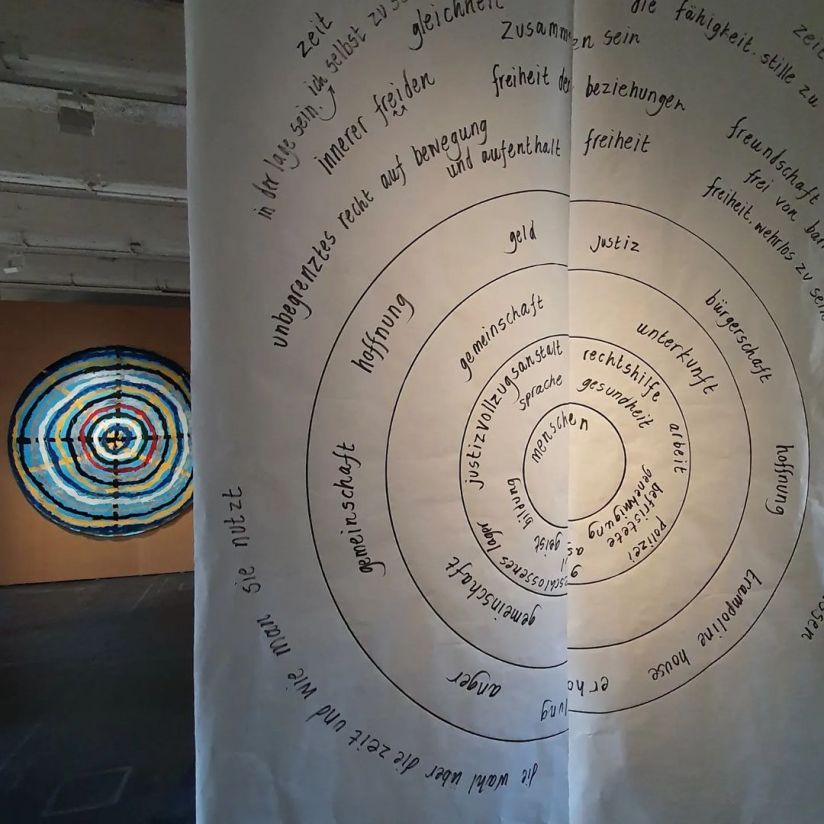 zeit
in der lage sein. ich selbst zu
gleichheit
zusammen sein
die fähigkeit. stille zu
zeit
innerer freiden
freiheit der beziehungen
freundschaft
frei von
unbegrenztes recht auf bewegung
und aufenthalt
freiheit
freiheit. wehrlos zu sein
geld
justiz
hoffnung
bürgerschaft
gemeinschaft
unterkunft
justizvollzugsanstalt
rechtshilfe
sprache
gesundheit
menschen
arbeit
hoffnung
gemeinschaft
bildung
geist
befristete
genehmigung
polizei
lager
gemeinschaft
trampoline house
anger
die wahl über die zeit und wie man sie nutzt